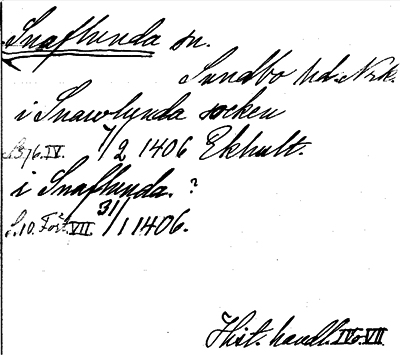 Snaflunda sn.
Sundbo hd. Nrk.
i Snawlynda socken
S. 376. IV. 7/2 1406 Ekhult.
i Snaflunda. ?
S. 10. Fört. VII. 31/1 1406.
Hist. handl. IV o. VII